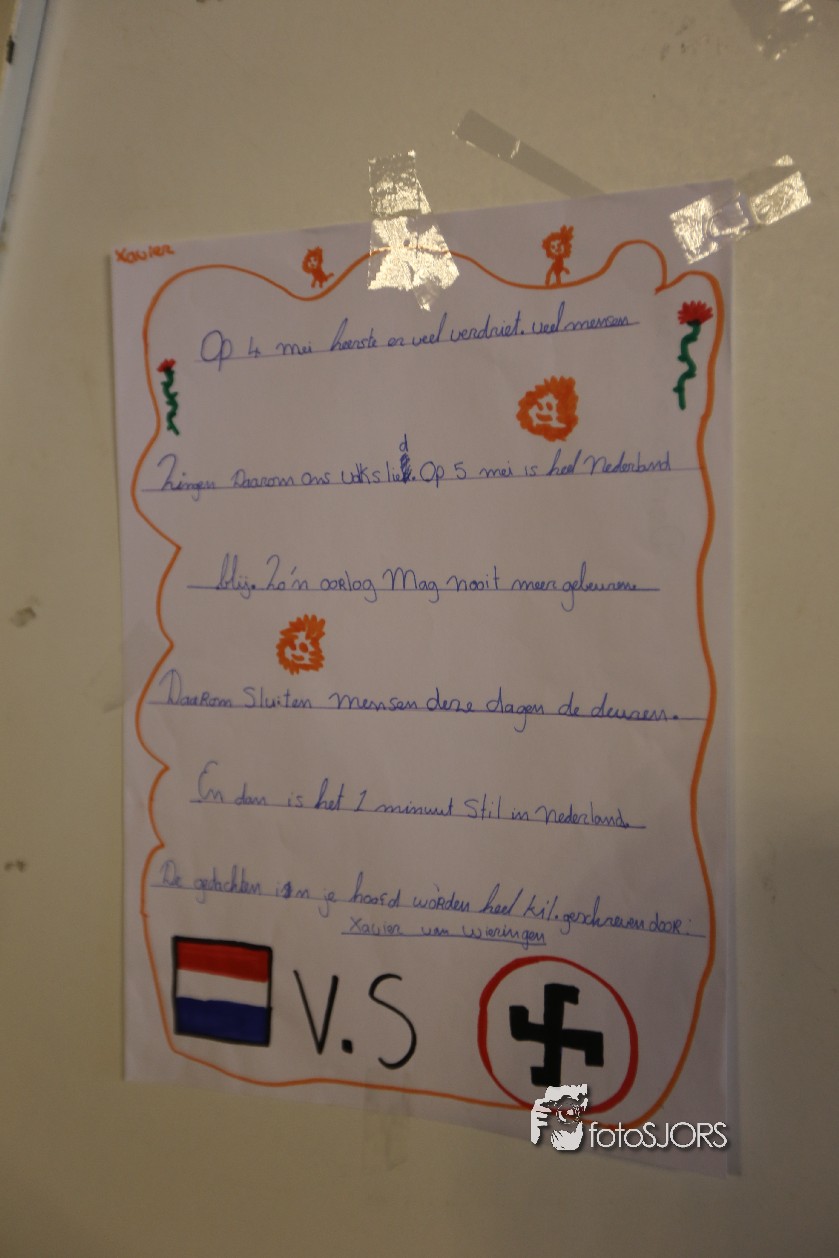 Xavier
Op 4 mei heerste er veel verdriet. veel mensen
Zingen Daarom ons volkslied. Op 5 mei is heel Nederland
blij. Zo'n oorlog Mag nooit meer gebeuren.
DaaRom Sluiten mensen deze dagen de deuren.
En dan is het 1 minuut Stil in Nederland.
De gedachten in je hoofd worden heel kil. geschreven door:
Xavier van wieringen
V.S
fotoSJORS